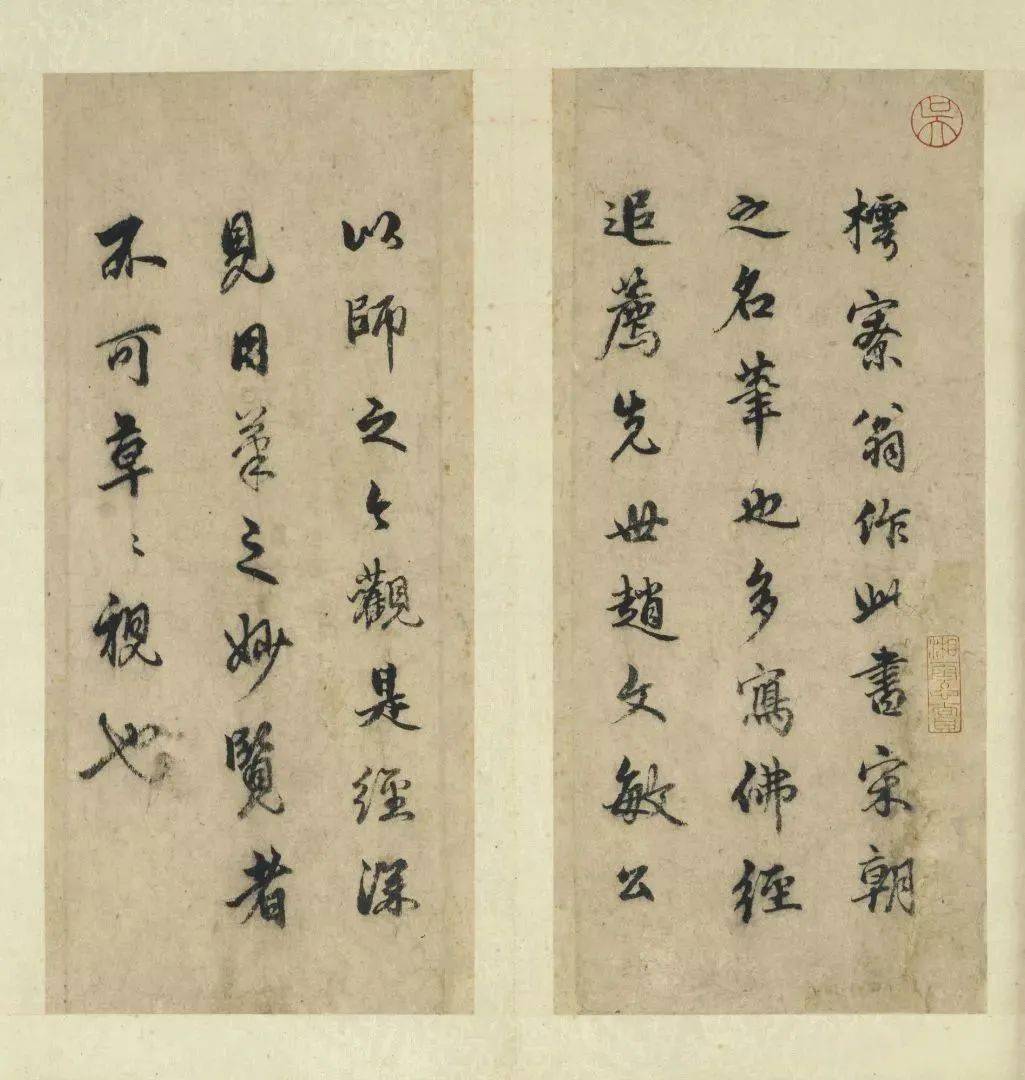 吳
樗寮翁作此書宋朝
之名筆也多寫佛經
追薦先世趙文敏公
以師之今觀是經深
見用筆之妙覽者
不可草〻視也